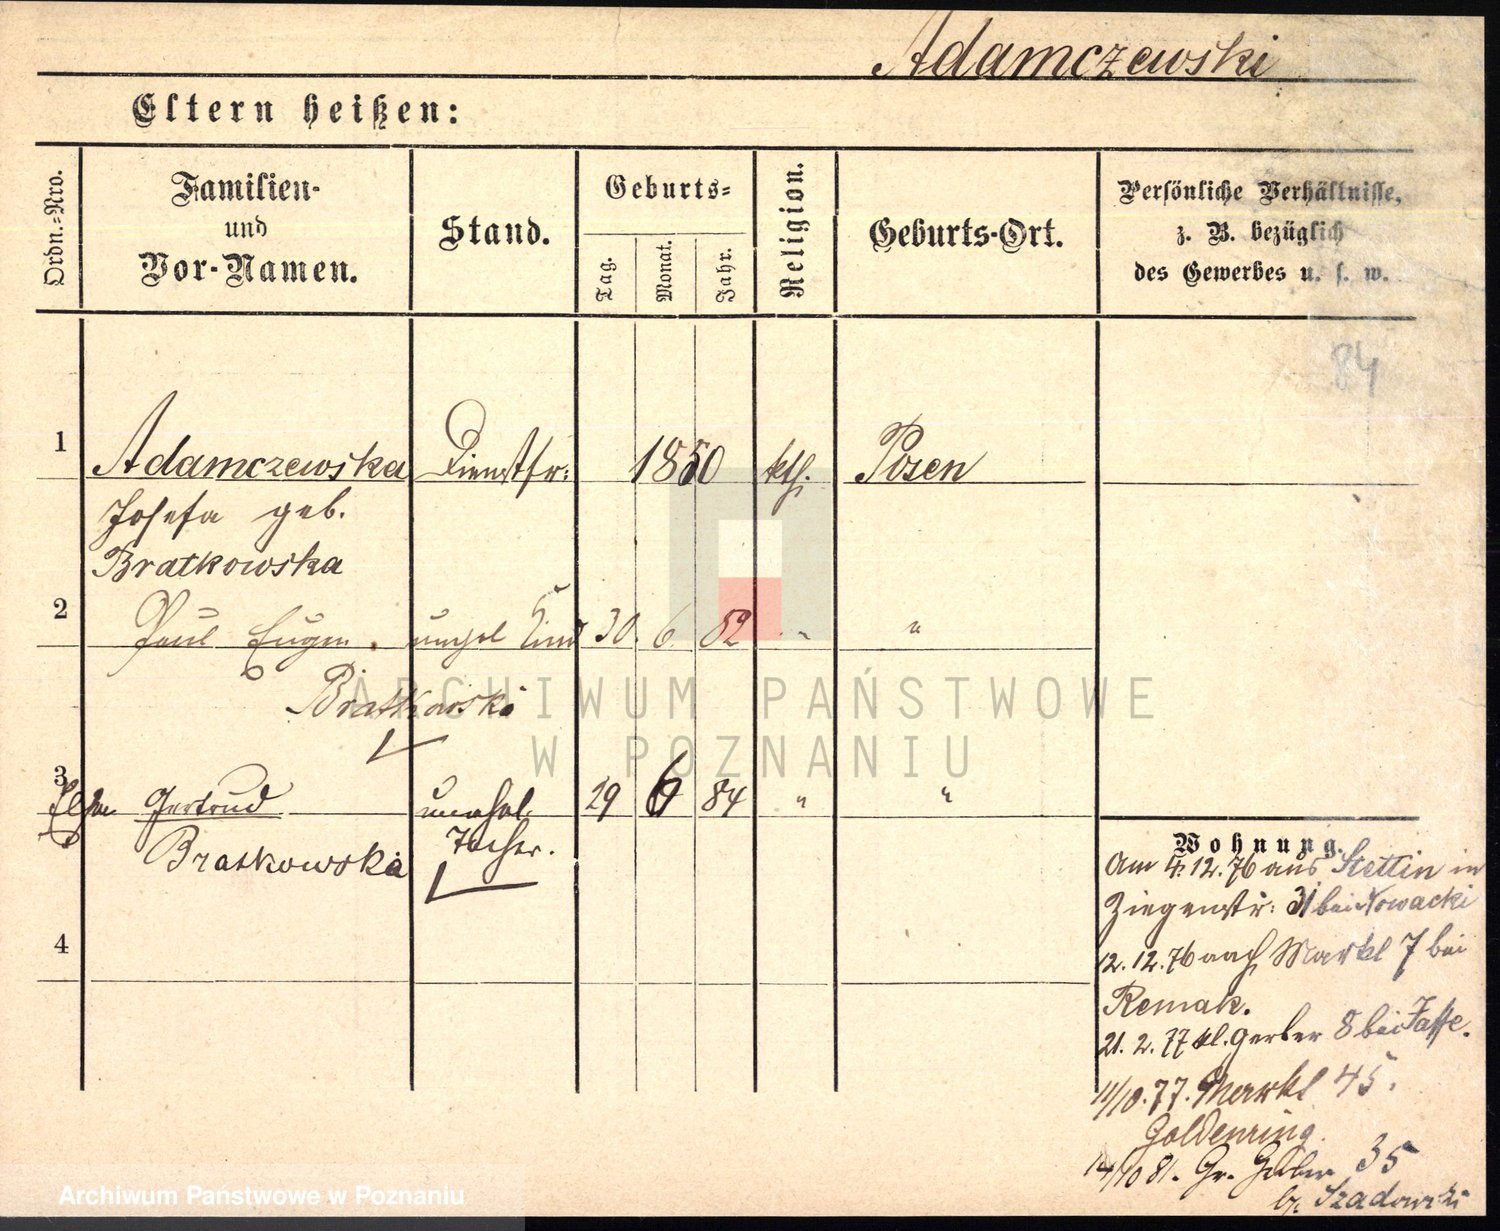 Adamczewski
Eltern heißen:
Ordn.-Nro.
Familien-
und
Vor-Namen.
Stand.
Geburts-
Tag.
Monat.
Jahr.
Religion.
Geburts-Ort.
Persönliche Verhältnisse,
z. B. bezüglich
des Gewerbes u. s. w.
84
1 Adamczewska Dienstfr: 1850 kth. Posen
Josefa geb.
Bratkowska
2 Paul Eugen unehel Kind 30. 6. 82 " "
Bratkowski
3
Gertrud unehel. 29 6 84 " "
Bratkowska Tochter.
4
Wohnung.
Am 4.12.76 aus Stettin in
Ziegenstr: 31 bei Nowacki
12.12.76 nach Markt 7 bei
Remak.
21. 2. 77 kl. Gerber 8 bei Jaffe.
11/10. 77. Markt 45.
Goldenring.
14/10 81. Gr. Gerber 35
b. Szadowski
ARCHIWUM PAŃSTWOWE
W POZNANIU
Archiwum Państwowe w Poznaniu